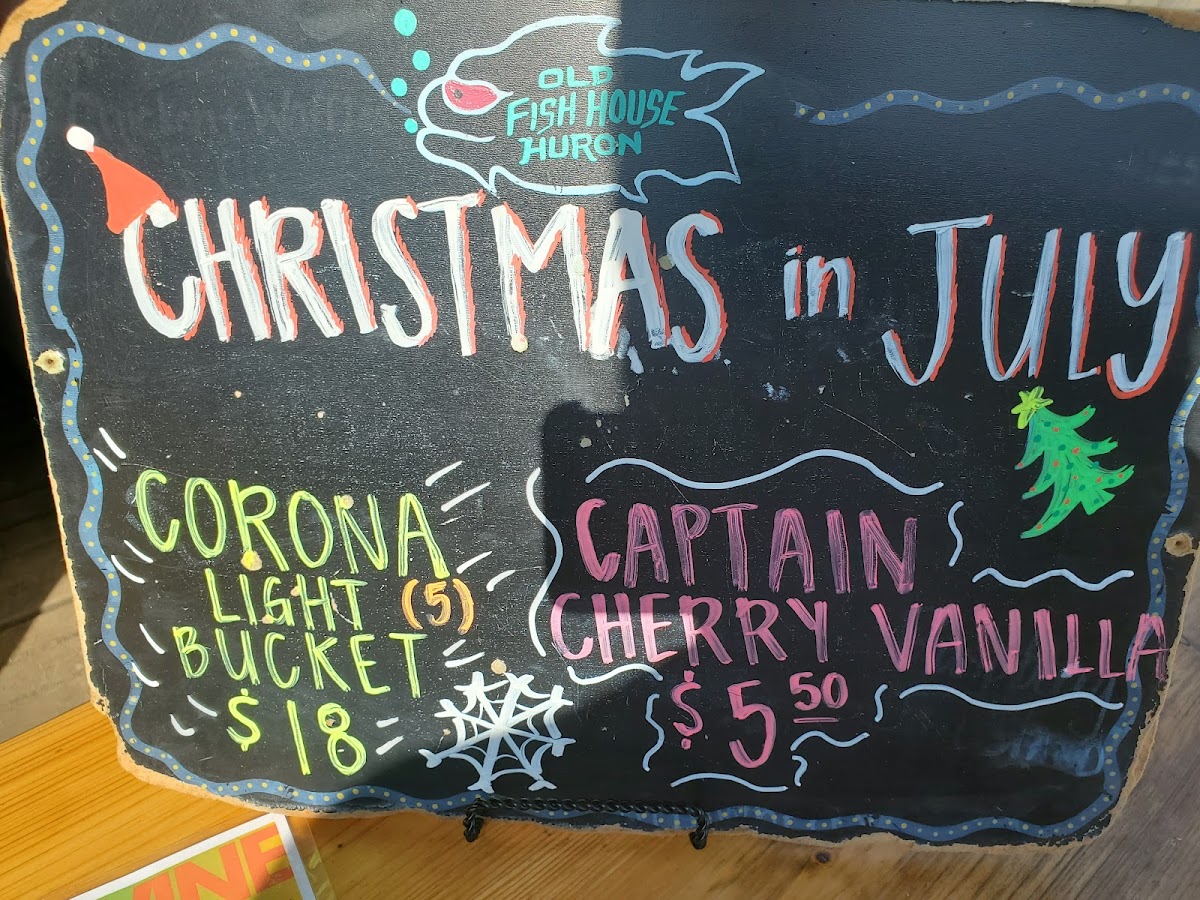 OLD
FISH HOUSE
HURON
CHRISTMAS in JULY
CORONA
LIGHT (5)
BUCKET
$18
CAPTAIN
CHERRY VANILLA
$5 50